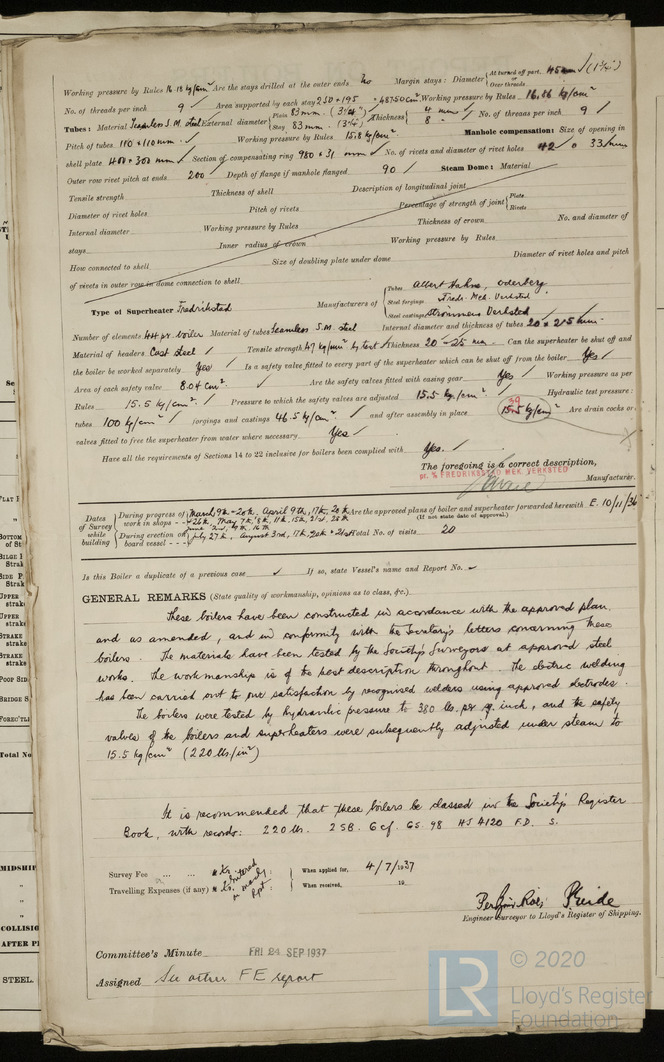 Working pressure by Rules 16.18 kg/cm² Are the stays drilled at the outer ends No Margin stays: Diameter { At turned off part, 45mm or Over threads (1¾")
No. of threads per inch 9 Area supported by each stay 250 × 195 = 48750 cm² Working pressure by Rules 16.26 kg/cm²
Tubes: Material Seamless S.M. steel External diameter { Plain 83 mm. (3¼") Stay 83 mm. (3¼") Thickness { 4 mm 8 " No. of threads per inch 9
Pitch of tubes 110 × 110 mm. Working pressure by Rules 15.8 kg/cm² Manhole compensation: Size of opening in
shell plate 400 × 300 mm Section of compensating ring 980 × 31 mm No. of rivets and diameter of rivet holes 42 33 mm
Outer row rivet pitch at ends 200 Depth of flange if manhole flanged 90 Steam Dome: Material
Tensile strength Thickness of shell Description of longitudinal joint
Diameter of rivet holes Pitch of rivets Percentage of strength of joint { Plate Rivets
Internal diameter Working pressure by Rules Thickness of crown No. and diameter of
stays Inner radius of crown Working pressure by Rules
How connected to shell Size of doubling plate under dome Diameter of rivet holes and pitch
of rivets in outer row in dome connection to shell
Type of Superheater Fredrikstad Manufacturers of { Tubes Albert Hahn, Oderberg. Steel forgings Freds. Mek. Verksted Steel castings Strömmen Verksted
Number of elements 44 pr. boiler Material of tubes Seamless S.M. steel Internal diameter and thickness of tubes 20 × 2.5 mm.
Material of headers Cast steel Tensile strength 47 kg/mm² by test Thickness 20 - 25 mm. Can the superheater be shut off and
the boiler be worked separately Yes Is a safety valve fitted to every part of the superheater which can be shut off from the boiler Yes
Area of each safety valve 8.04 cm² Are the safety valves fitted with easing gear Yes Working pressure as per
Rules 15.5 kg/cm² Pressure to which the safety valves are adjusted 15.5 kg./cm² Hydraulic test pressure:
tubes 100 kg/cm² forgings and castings 46.5 kg/cm² and after assembly in place kg/cm² Are drain cocks or
valves fitted to free the superheater from water where necessary Yes
Have all the requirements of Sections 14 to 22 inclusive for boilers been complied with Yes.
The foregoing is a correct description,
pr. % FREDRIKSSTAD MEK. VERKSTED
Manufacturer.
Dates of Survey while building { During progress of work in shops - - March 9th - 20th, April 9th, 17th, 20th Are the approved plans of boiler and superheater forwarded herewith E. 10/11/36
26th, May 7th, 8th, 11th, 15th, 21st, 28th (If not state date of approval.)
June 2nd, 9th, 16th
During erection on board vessel - - - July 27th, August 3rd, 17th, 20th & 21st Total No. of visits 20
Is this Boiler a duplicate of a previous case If so, state Vessel's name and Report No.
GENERAL REMARKS (State quality of workmanship, opinions as to class, &c.)
These boilers have been constructed in accordance with the approved plan,
and as amended, and in conformity with the Secretary's letters concerning these
boilers. The materials have been tested by the Society's Surveyors at approved steel
works. The workmanship is of the best description throughout. The electric welding
has been carried out to our satisfaction by recognised welders using approved electrodes.
The boilers were tested by hydraulic pressure to 380 lbs. per sq. inch, and the safety
valves of the boilers and superheaters were subsequently adjusted under steam to
15.5 kg/cm² (220 lbs/in²)
It is recommended that these boilers be classed in the Society's Register
Book, with records: 220 lbs. 2 SB. 6 cf. GS. 98 HS 4120 F.D. S.
Survey Fee ... ... When applied for, 4/7/1937
Travelling Expenses (if any) When received, 19
Entered in mach. Rpt.
Pride
Engineer Surveyor to Lloyd's Register of Shipping.
Committee's Minute FRI 24 SEP 1937
Assigned See other F E report
LR © 2020
Lloyd's Register
Foundation
Total No
MIDSHIP
COLLISIO
AFTER P
STEEL.